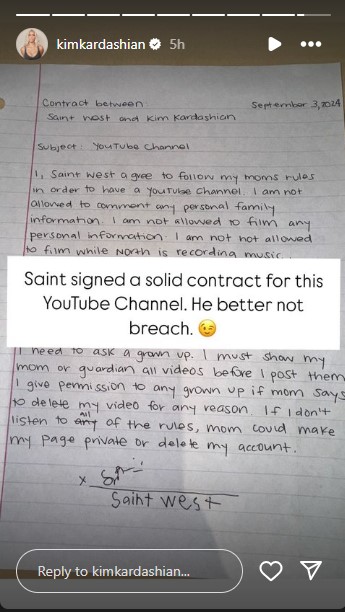 kimkardashian 5h
Contract between: September 3, 2024
Saint West and Kim Kardashian
Subject: YouTube Channel
I, Saint West agree to follow my moms rules
in order to have a YouTube Channel. I am not
allowed to comment any personal family
information. I am not allowed to film any
personal information. I am not not allowed
to film while North is recording music.
Saint signed a solid contract for this
YouTube Channel. He better not
breach. 😉
I need to ask a grown up. I must show my
mom or guardian all videos before I post them
I give permission to any grown up if mom says
to delete my video for any reason. If I don't
listen to all of the rules, mom could make
my page private or delete my account.
x
Saint West
Reply to kimkardashian...